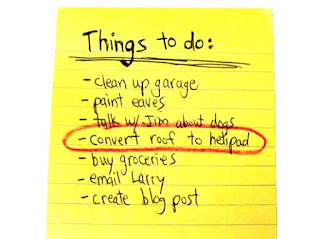 Things to do:
- clean up garage
- paint eaves
- talk w/ Jim about dogs
- convert roof to helipad
- buy groceries
- email Larry
- create blog post